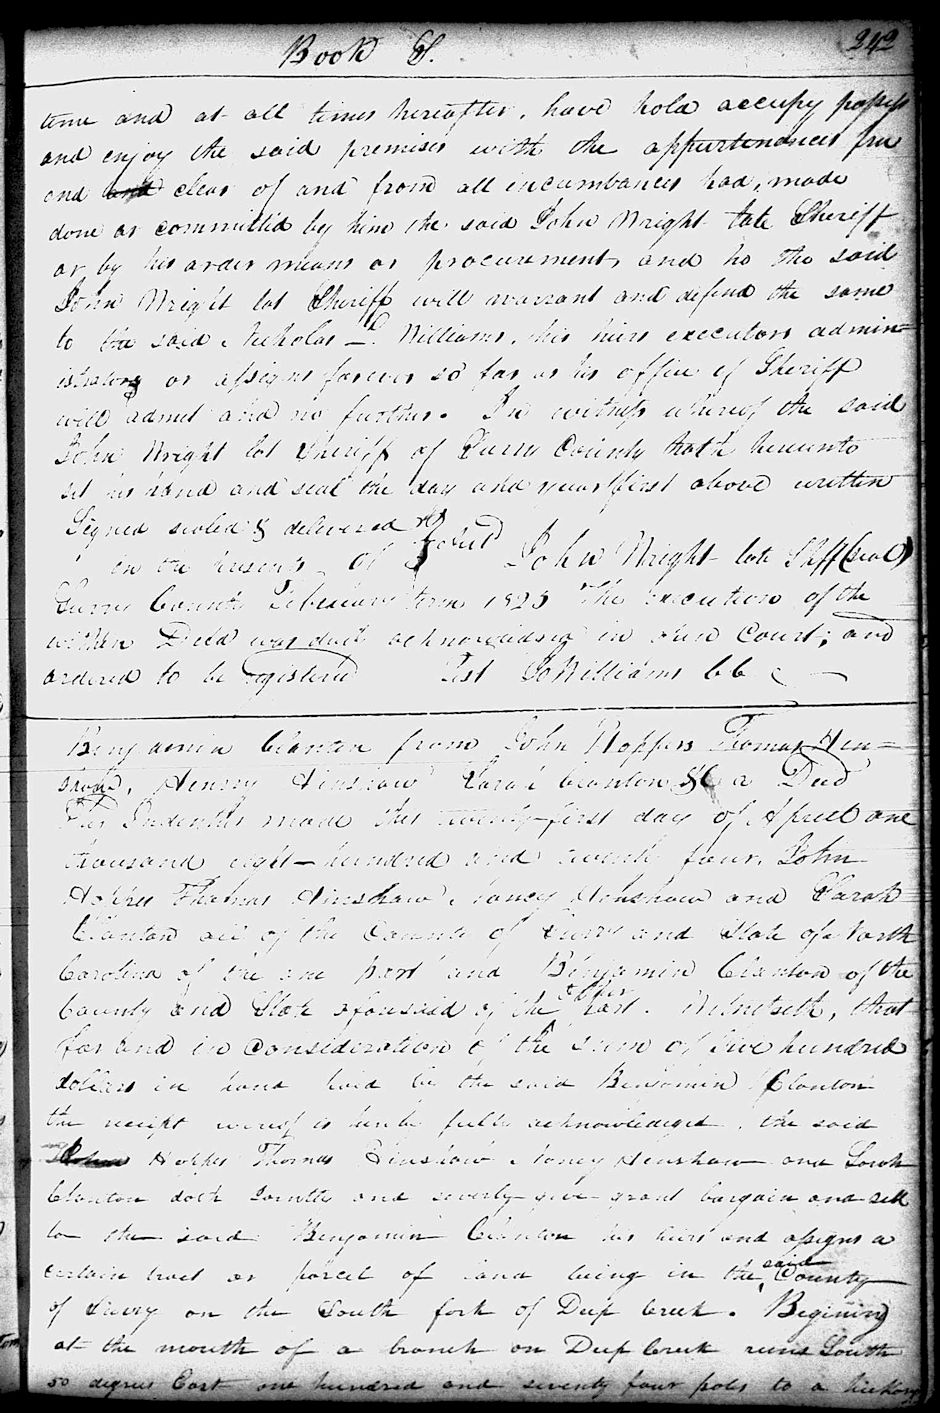 Book S.
242
time and at all times hereafter, have hold occupy possess
and enjoy the said premises with the appurtenances free
and and clear of and from all incumbances had, made
done or committid by him the said John Wright late Sheriff
or by his order means or procurement, and he the said
John Wright lat Sheriff will warrant and defend the same
to the said Nicholas L. Williams, his heirs executors admin=
istrators or assigns forever so far as his office of Sheriff
will admit and no further. In witness whereof the said
John Wright lat Sheriff of Surry County hath hereunto
set his hand and seal the day and year first above written
Signed sealed & delivered
in the presents of John Wright late Shff (seal)
Surry County February term 1825 The execution of the
within Deed was duly acknowledged in open Court, and
ordered to be registered Test Jo Williams CC
Benjamin Clanton from John Hoppers Thomas Hen=
shaw, Henry Hinshaw Sarah Clanton &C a Deed
This Indenture made this twenty-first day of April one
thousand eight-hundred and twenty four, John
Hopper Thomas Hinshaw, Nancy Hinshaw and Sarah
Clanton all of the County of Surry and State of North
Carolina of the one part and Benjamin Clanton of the
County and State aforesaid of the other part. Witnesseth, that
for and in consideration of the sum of five hundred
dollars in hand paid by the said Benjamin Clanton
the receipt wereof is hereby fully acknowledged, the said
John Hopper Thomas Hinshaw Nancy Henshaw and Sarah
Clanton doth jointly and severly give grant bargain and sell
to the said Benjamin Clanton his heirs and assigns a
certain tract or parcel of land being in the said County
of Surry on the South fork of Deep Creek. Begining
at the mouth of a branch on Deep Creek runs South
50 degrees East one hundred and seventy four poles to a hickory